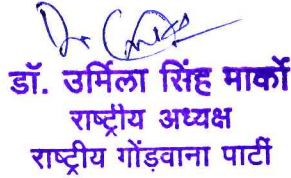 डॉ. उर्मिला सिंह मार्को
राष्ट्रीय अध्यक्ष
राष्ट्रीय गोंड़वाना पार्टी